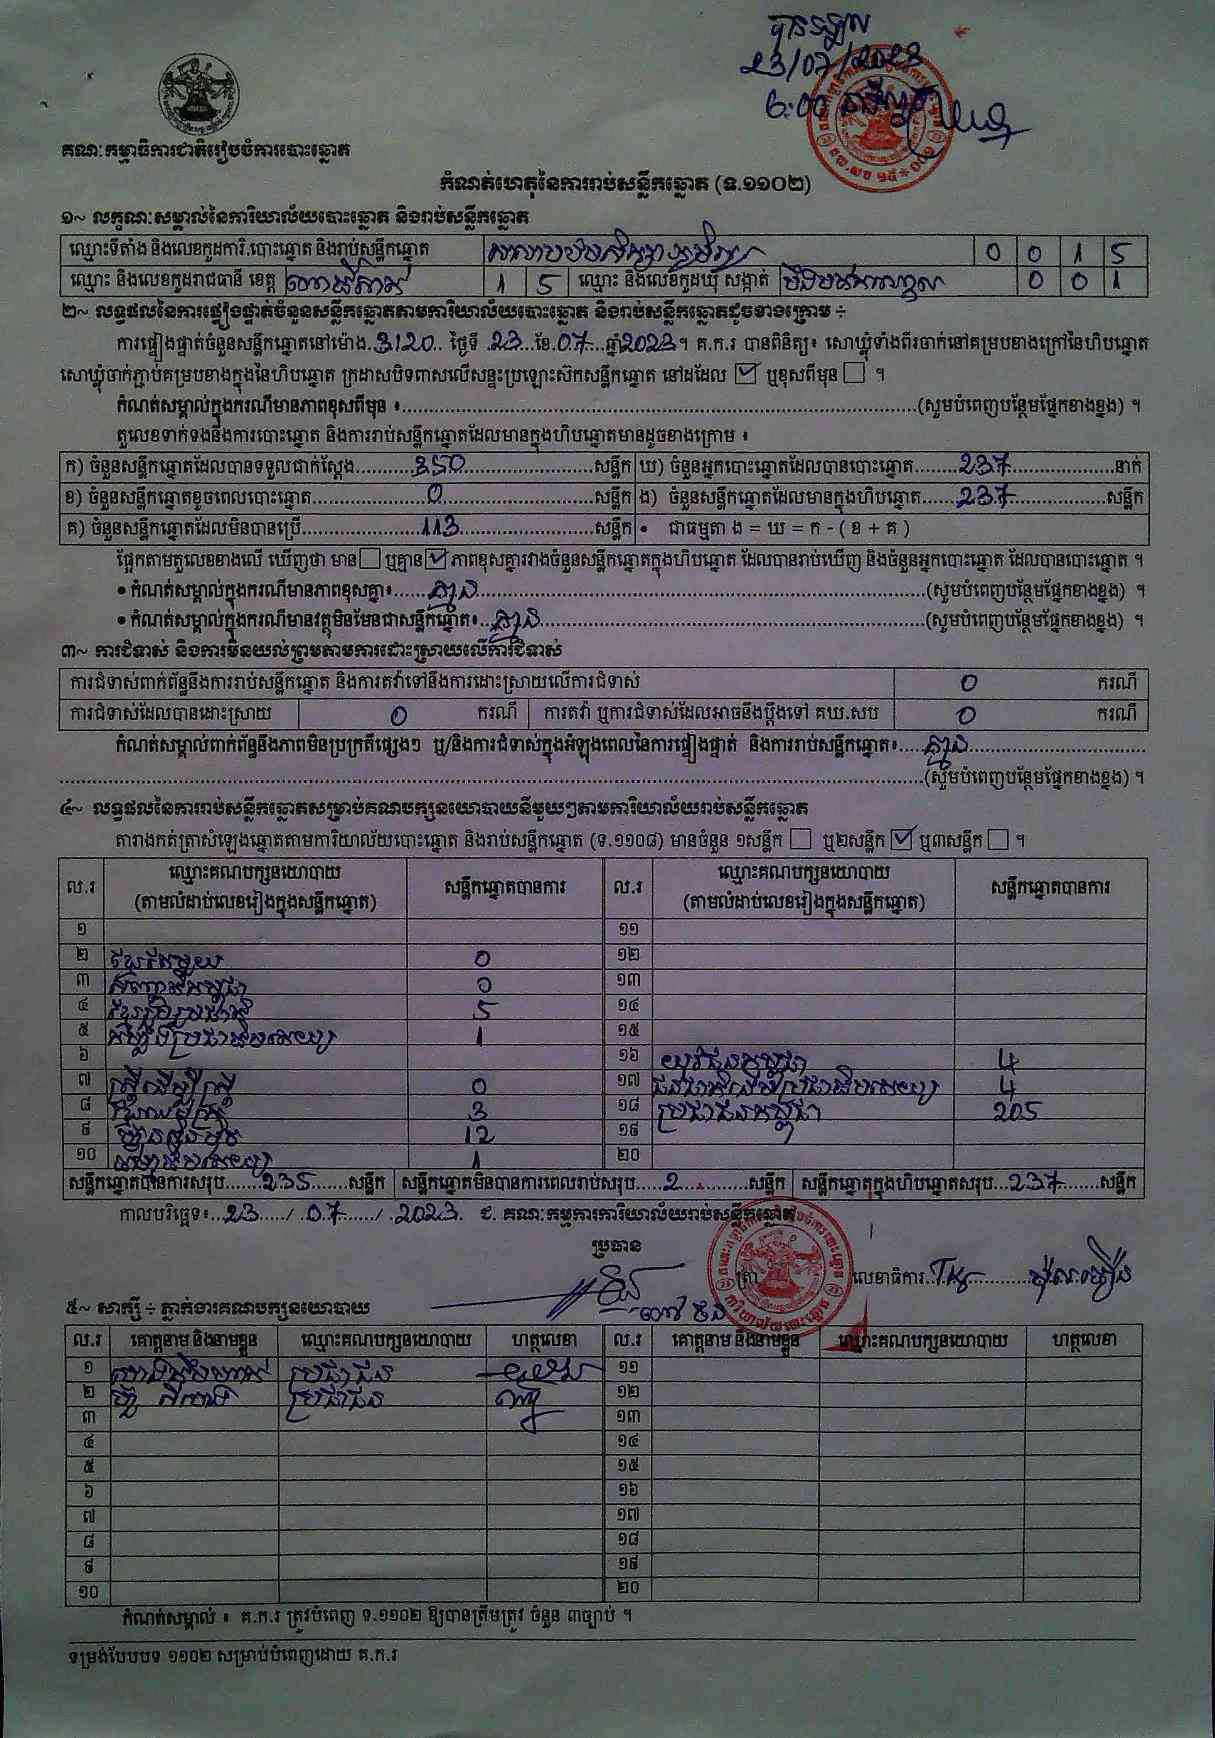 បានទទួល
23/07/2023
6:00 នាទីល្ងាច
គណៈកម្មាធិការជាតិរៀបចំការបោះឆ្នោត
កំណត់ហេតុនៃការរាប់សន្លឹកឆ្នោត (ទ.១១០២)
១~ លក្ខណៈសម្គាល់នៃការិយាល័យបោះឆ្នោត និងរាប់សន្លឹកឆ្នោត
ឈ្មោះទីតាំង និងលេខកូដការិ.បោះឆ្នោត និងរាប់សន្លឹកឆ្នោត សាលាបឋមសិក្សា 0 0 1 5
ឈ្មោះ និងលេខកូដរាជធានី ខេត្ត ពោធិ៍សាត់ 1 5 ឈ្មោះ និងលេខកូដឃុំ សង្កាត់ 0 0 1
២~ លទ្ធផលនៃការផ្ទៀងផ្ទាត់ចំនួនសន្លឹកឆ្នោតតាមការិយាល័យបោះឆ្នោត និងរាប់សន្លឹកឆ្នោតដូចខាងក្រោម ÷
ការផ្ទៀងផ្ទាត់ចំនួនសន្លឹកឆ្នោតនៅម៉ោង.3:20.. ថ្ងៃទី .23...ខែ.07...ឆ្នាំ2023។ គ.ក.រ បានពិនិត្យ៖ សោឃ្លុំទាំងពីរចាក់នៅគម្របខាងក្រៅនៃហិបឆ្នោត
សោឃ្លុំចាក់ភ្ជាប់គម្របខាងក្នុងនៃហិបឆ្នោត ក្រដាសបិទពាសលើសន្ទះប្រឡោះស៊កសន្លឹកឆ្នោត នៅដដែល ☑ ឬខុសពីមុន ☐ ។
កំណត់សម្គាល់ក្នុងករណីមានភាពខុសពីមុន ៖..........(សូមបំពេញបន្ថែមផ្នែកខាងខ្នង) ។
តួលេខទាក់ទងនឹងការបោះឆ្នោត និងការរាប់សន្លឹកឆ្នោតដែលមានក្នុងហិបឆ្នោតមានដូចខាងក្រោម ៖
ក) ចំនួនសន្លឹកឆ្នោតដែលបានទទួលជាក់ស្តែង..........350..........សន្លឹក ឃ) ចំនួនអ្នកបោះឆ្នោតដែលបានបោះឆ្នោត........237..........នាក់
ខ) ចំនួនសន្លឹកឆ្នោតខូចពេលបោះឆ្នោត..........0..........សន្លឹក ង) ចំនួនសន្លឹកឆ្នោតដែលមានក្នុងហិបឆ្នោត.......237..........សន្លឹក
គ) ចំនួនសន្លឹកឆ្នោតដែលមិនបានប្រើ..........113..........សន្លឹក • ជាធម្មតា ង = ឃ = ក - ( ខ + គ )
ផ្អែកតាមតួលេខខាងលើ ឃើញថា មាន ☐ ឬគ្មាន ☑ ភាពខុសគ្នារវាងចំនួនសន្លឹកឆ្នោតក្នុងហិបឆ្នោត ដែលបានរាប់ឃើញ និងចំនួនអ្នកបោះឆ្នោត ដែលបានបោះឆ្នោត ។
• កំណត់សម្គាល់ក្នុងករណីមានភាពខុសគ្នា៖......គ្មាន..........(សូមបំពេញបន្ថែមផ្នែកខាងខ្នង) ។
• កំណត់សម្គាល់ក្នុងករណីមានវត្ថុមិនមែនជាសន្លឹកឆ្នោត៖...គ្មាន..........(សូមបំពេញបន្ថែមផ្នែកខាងខ្នង) ។
៣~ ការជំទាស់ និងការមិនយល់ព្រមតាមការដោះស្រាយលើការជំទាស់
ការជំទាស់ពាក់ព័ន្ធនឹងការរាប់សន្លឹកឆ្នោត និងការតវ៉ាទៅនឹងការដោះស្រាយលើការជំទាស់ 0 ករណី
ការជំទាស់ដែលបានដោះស្រាយ 0 ករណី ការតវ៉ា ឬការជំទាស់ដែលអាចនឹងប្តឹងទៅ គឃ.សប 0 ករណី
កំណត់សម្គាល់ពាក់ព័ន្ធនឹងភាពមិនប្រក្រតីផ្សេងៗ ឬ/និងការជំទាស់ក្នុងអំឡុងពេលនៃការផ្ទៀងផ្ទាត់ និងការរាប់សន្លឹកឆ្នោត៖.....គ្មាន..........
..........(សូមបំពេញបន្ថែមផ្នែកខាងខ្នង) ។
៤~ លទ្ធផលនៃការរាប់សន្លឹកឆ្នោតសម្រាប់គណបក្សនយោបាយនីមួយៗតាមការិយាល័យរាប់សន្លឹកឆ្នោត
តារាងកត់ត្រាសំឡេងឆ្នោតតាមការិយាល័យបោះឆ្នោត និងរាប់សន្លឹកឆ្នោត (ទ.១១០៨) មានចំនួន ១សន្លឹក ☐ ឬ២សន្លឹក ☑ ឬ៣សន្លឹក ☐ ។
ល.រ ឈ្មោះគណបក្សនយោបាយ (តាមលំដាប់លេខរៀងក្នុងសន្លឹកឆ្នោត) សន្លឹកឆ្នោតបានការ ល.រ ឈ្មោះគណបក្សនយោបាយ (តាមលំដាប់លេខរៀងក្នុងសន្លឹកឆ្នោត) សន្លឹកឆ្នោតបានការ
១ ១១
២ ខ្មែរតែមួយ 0 ១២
៣ 0 ១៣
៤ 5 ១៤
៥ 1 ១៥
៦ ១៦ យុវជនកម្ពុជា 4
៧ ស្ត្រីដើម្បីស្ត្រី 0 ១៧ 4
៨ 3 ១៨ ប្រជាជនកម្ពុជា 205
៩ 12 ១៩
១០ 1 ២០
សន្លឹកឆ្នោតបានការសរុប.......235.......សន្លឹក សន្លឹកឆ្នោតមិនបានការពេលរាប់សរុប.....2..........សន្លឹក សន្លឹកឆ្នោតក្នុងហិបឆ្នោតសរុប...237.......សន្លឹក
កាលបរិច្ឆេទ៖..23...../..07....../..2023. ជ. គណៈកម្មការការិយាល័យរាប់សន្លឹកឆ្នោត
ប្រធាន
ត្រា លេខាធិការ
៥~ សាក្សី ÷ ភ្នាក់ងារគណបក្សនយោបាយ
ល.រ គោត្តនាម និងនាមខ្លួន ឈ្មោះគណបក្សនយោបាយ ហត្ថលេខា ល.រ គោត្តនាម និងនាមខ្លួន ឈ្មោះគណបក្សនយោបាយ ហត្ថលេខា
១ ប្រជាជន ១១
២ ប្រជាជន ១២
៣ ១៣
៤ ១៤
៥ ១៥
៦ ១៦
៧ ១៧
៨ ១៨
៩ ១៩
១០ ២០
កំណត់សម្គាល់ ៖ គ.ក.រ ត្រូវបំពេញ ទ.១១០២ ឱ្យបានត្រឹមត្រូវ ចំនួន ៣ច្បាប់ ។
ទម្រង់បែបបទ ១១០២ សម្រាប់បំពេញដោយ គ.ក.រ